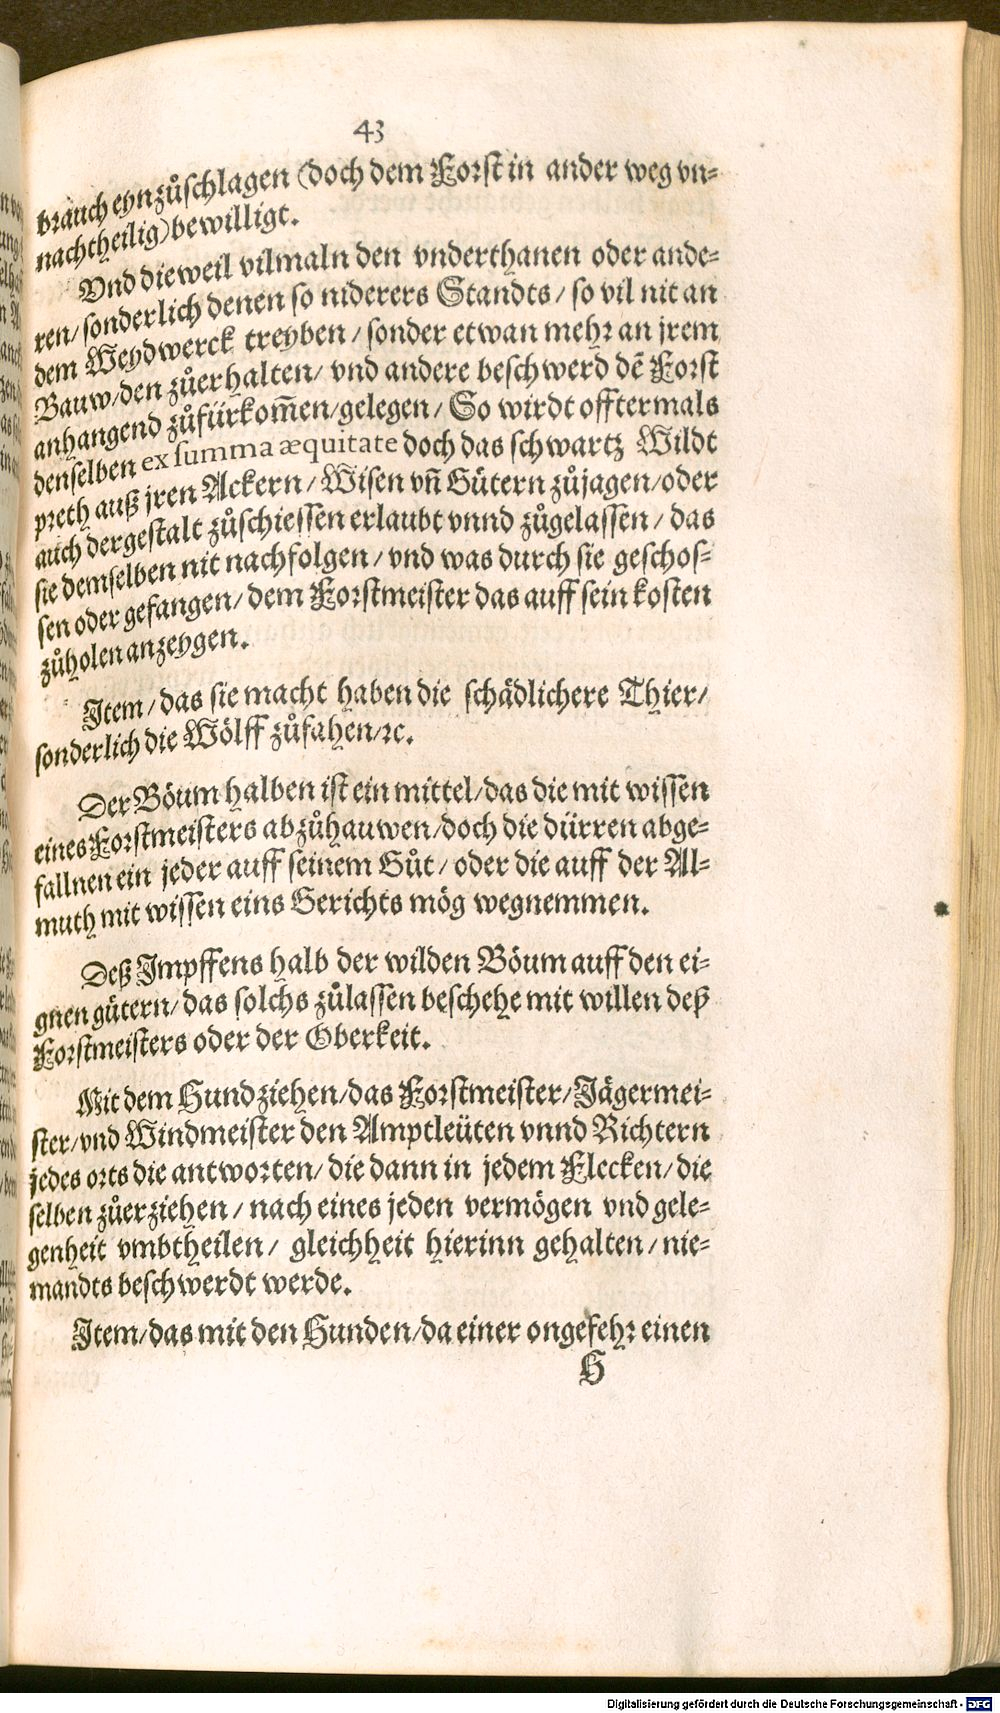 43
brauch eynzůschlagen (doch dem Forst in ander weg vn-
nachtheilig) bewilligt.
Vnd dieweil vilmaln den vnderthanen oder ande-
ren/ sonderlich denen so niderers Standts/ so vil nit an
dem Weydwerck treyben/ sonder etwan mehr an jrem
Bauw/ den zůerhalten/ vnd andere beschwerd dẽ Forst
anhangend zůfürkom̃en/ gelegen/ So wirdt offtermals
denselben ex summa æquitate doch das schwartz Wildt
preth auß jren Ackern/ Wisen vñ Gütern zůjagen/ oder
auch dergestalt zůschiessen erlaubt vnnd zůgelassen/ das
sie demselben nit nachfolgen/ vnd was durch sie geschos-
sen oder gefangen/ dem Forstmeister das auff sein kosten
zůholen anzeygen.
Item/ das sie macht haben die schädlichere Thier/
sonderlich die Wölff zůfahen/ ꝛc.
Der Böum halben ist ein mittel/ das die mit wissen
eines Forstmeisters abzůhauwen/ doch die dürren abge-
fallnen ein jeder auff seinem Gůt/ oder die auff der Al-
muth mit wissen eins Gerichts mög wegnemmen.
Deß Impffens halb der wilden Böum auff den ei-
gnen gütern/ das solchs zůlassen beschehe mit willen deß
Forstmeisters oder der Oberkeit.
Mit dem Hund ziehen/ das Forstmeister/ Jägermei-
ster/ vnd Windmeister den Amptleüten vnnd Richtern
jedes orts die antworten/ die dann in jedem Flecken/ die
selben zůerziehen/ nach eines jeden vermögen vnd gele-
genheit vmbtheilen/ gleichheit hierinn gehalten/ nie-
mandts beschwerdt werde.
Item/ das mit den Hunden/ da einer ongefehr einen
H
Digitalisierung gefördert durch die Deutsche Forschungsgemeinschaft - DFG